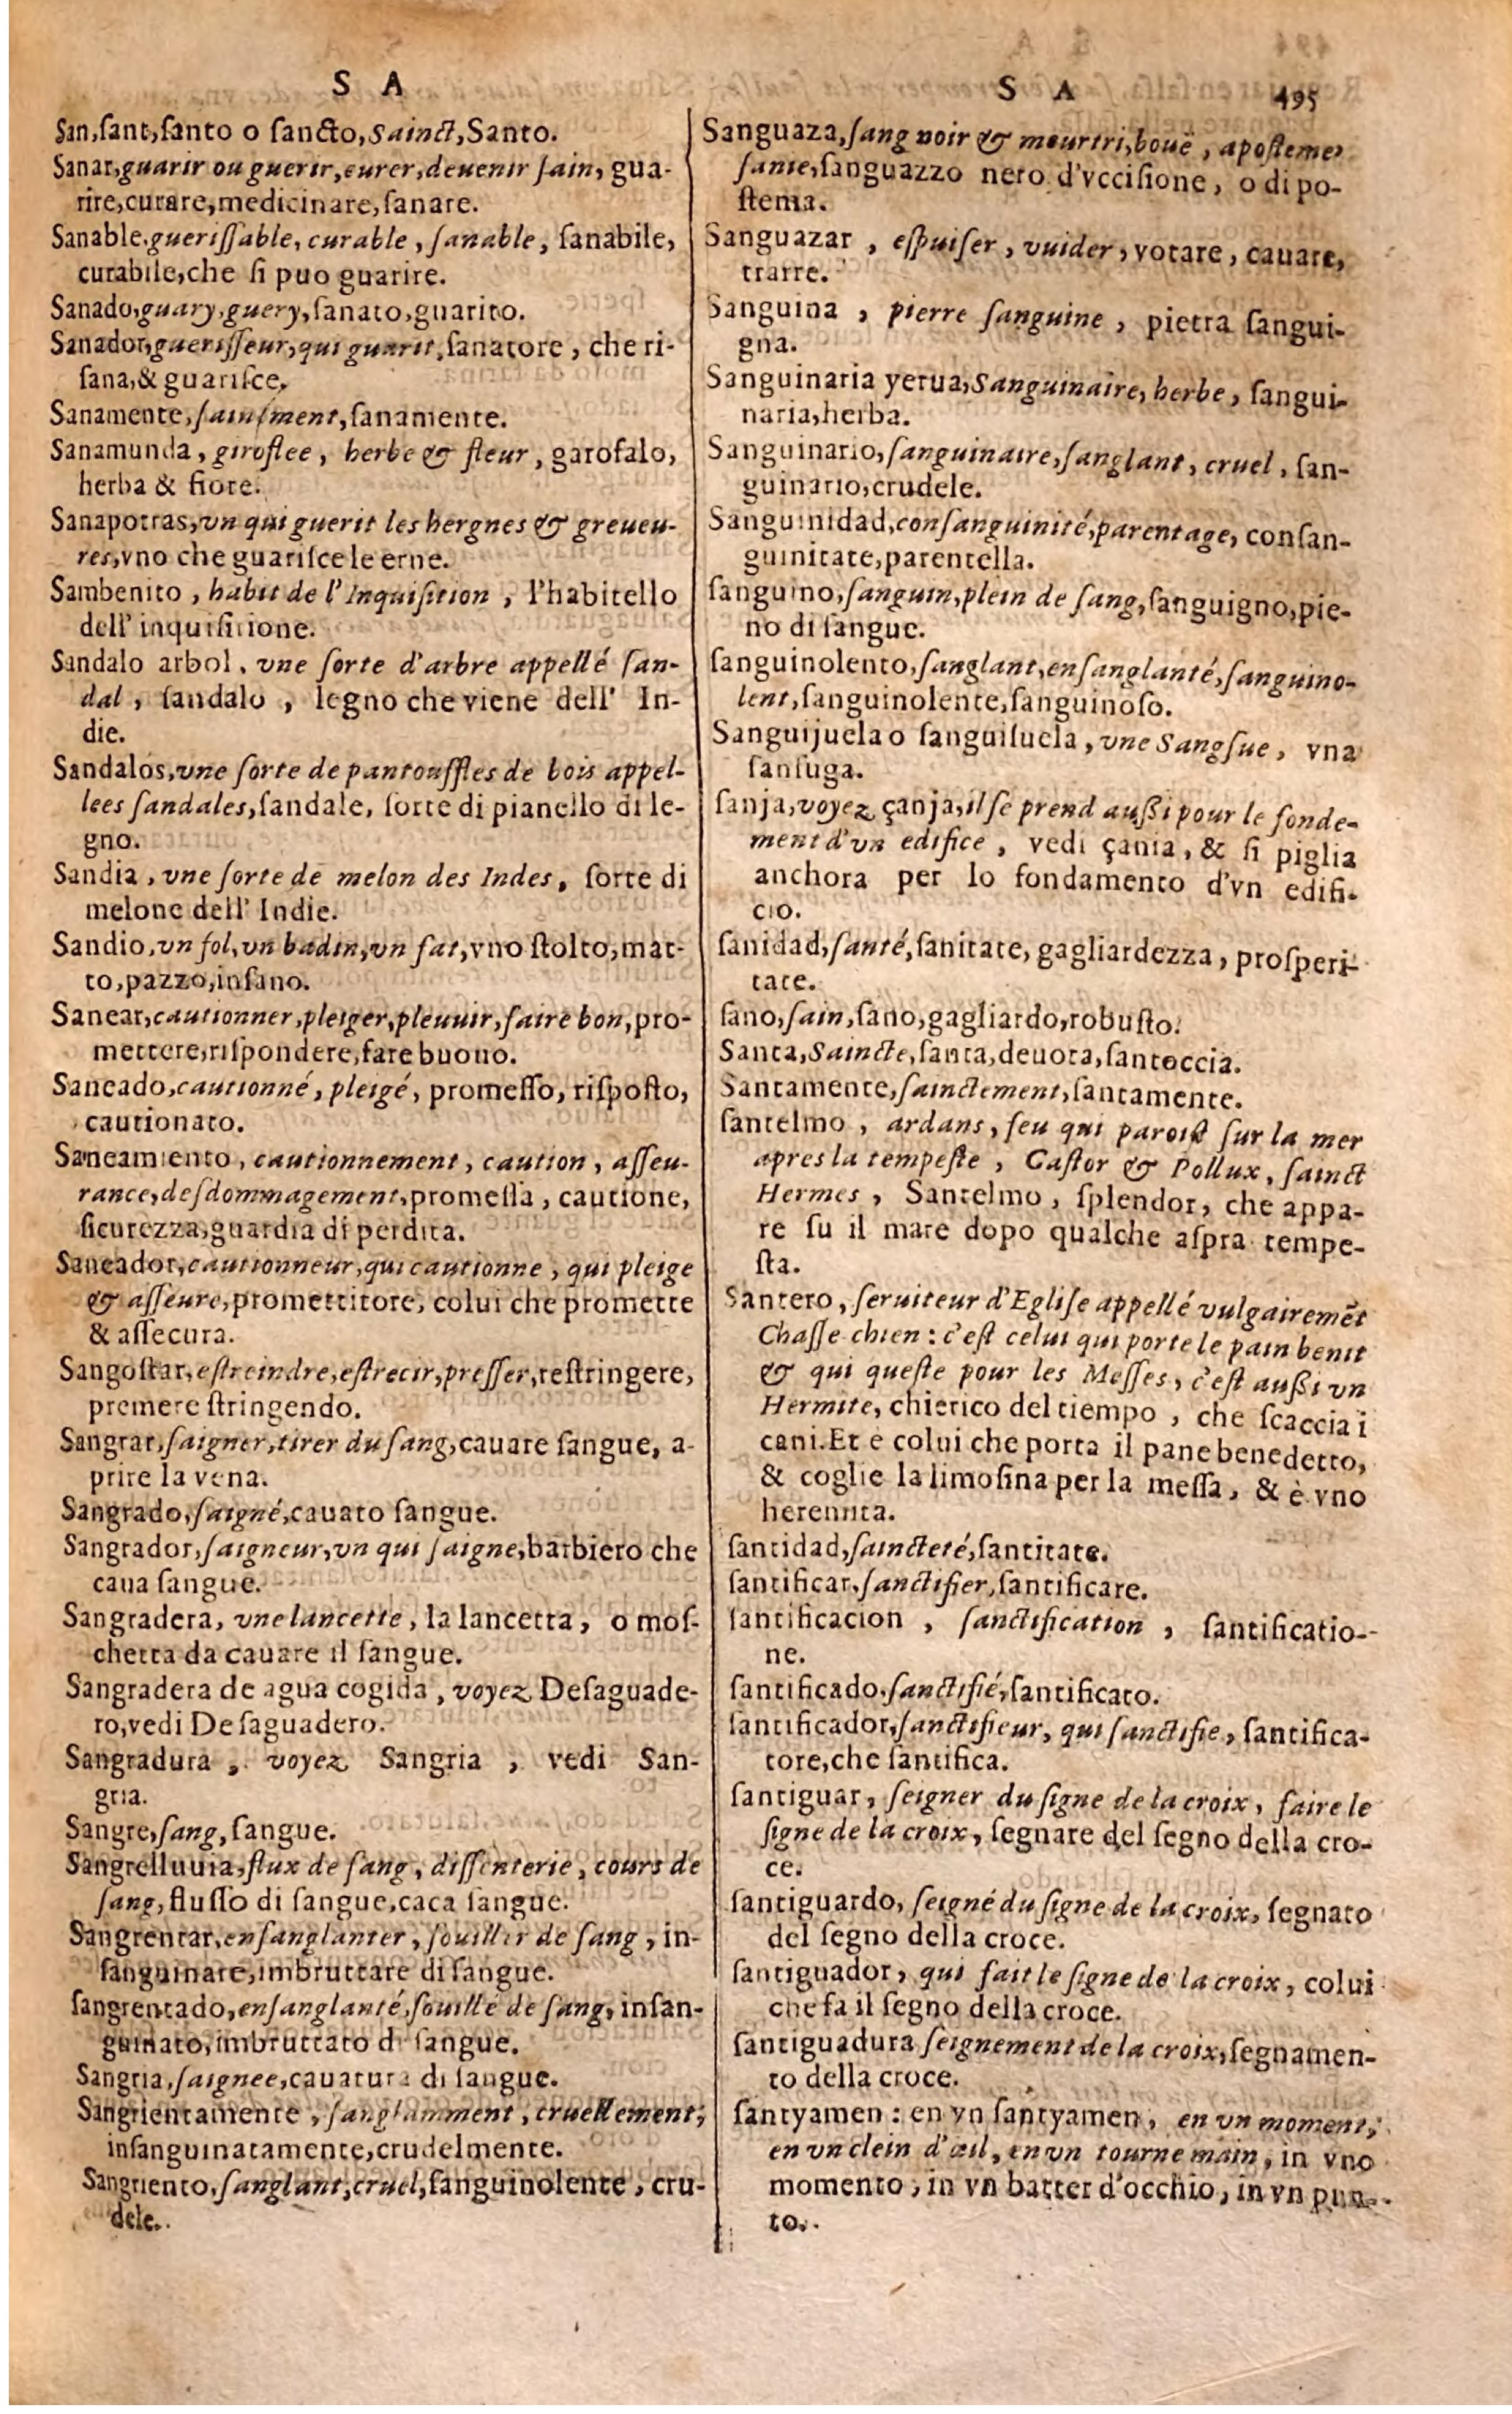 S A
San,ſant,ſanto o ſancto,Sainct,Santo.
Sanar,guarir ou guerir,curer,deuenir ſain, gua-
rire,curare,medicinare,ſanare.
Sanable.gueriſſable, curable, ſanable, ſanabile,
curabile,che ſi puo guarire.
Sanado,guary,guery,ſanato,guarito.
Sanador,gueriſſeur,qui guarit,ſanatore, che ri-
ſana,& guariſce.
Sanamente,ſainement,ſanamente.
Sanamunda, giroflee, herbe & fleur, garofalo,
herba & fiore.
Sanapotras,vn qui guerit les hergnes & greueu-
res,vno che guariſce le erne.
Sambenito, habit de l'Inquiſition, l'habitello
dell' inquiſitione.
Sandalo arbol, vne ſorte d'arbre appellé ſan-
dal, ſandalo, legno che viene dell' In-
die.
Sandalos,vne ſorte de pantouffles de bois appel-
lees ſandales,ſandale, ſorte di pianello di le-
gno.
Sandia, vne ſorte de melon des Indes, ſorte di
melone dell' Indie.
Sandio,vn fol,vn badin,vn fat,vno ſtolto,mat-
to,pazzo,inſano.
Sanear,cautionner,pleiger,pleuuir,faire bon,pro-
mettere,riſpondere,fare buono.
Saneado,cautionné, pleigé, promeſſo, riſpoſto,
cautionato.
Saneamiento, cautionnement, caution, aſſeu-
rance,deſdommagement,promeſſa, cautione,
ſicurezza,guardia di perdita.
Saneador,cautionneur,qui cautionne, qui pleige
& aſſeure,promettitore, colui che promette
& aſſecura.
Sangoſtar,eſtreindre,eſtrecir,preſſer,reſtringere,
premere ſtringendo.
Sangrar,ſaigner,tirer du ſang,cauare ſangue, a-
prire la vena.
Sangrado,ſaigné,cauato ſangue.
Sangrador,ſaigneur,vn qui ſaigne,barbiero che
caua ſangue.
Sangradera, vne lancette, la lancetta, o moſ-
chetta da cauare il ſangue.
Sangradera de agua cogida, voyez Deſaguade-
ro,vedi Deſaguadero.
Sangradura, voyez Sangria, vedi San-
gria.
Sangre,ſang,ſangue.
Sangrelluuia,flux de ſang, diſſenterie, cours de
ſang,fluſſo di ſangue,caca ſangue.
Sangrentar,enſanglanter, ſouiller de ſang, in-
ſanguinare,imbruttare di ſangue.
ſangrentado,enſanglanté,ſouillé de ſang, inſan-
guinato,imbruttato di ſangue.
Sangria,ſaignee,cauatura di ſangue.
Sangrientamente, ſanglamment, cruellement,
inſanguinatamente,crudelmente.
Sangriento,ſanglant,cruel,ſanguinolente, cru-
dele.
S A 495
Sanguaza,ſang noir & meurtri,bouë, apoſteme,
ſanie,ſanguazzo nero d'vcciſione, o di po-
ſtema.
Sanguazar, eſpuiſer, vuider, votare, cauare,
trarre.
Sanguina, pierre ſanguine, pietra ſangui-
gna.
Sanguinaria yerua,Sanguinaire, herbe, ſangui-
naria,herba.
Sanguinario,ſanguinaire,ſanglant, cruel, ſan-
guinario,crudele.
Sanguinidad,conſanguinité,parentage, conſan-
guinitate,parentella.
ſanguino,ſanguin,plein de ſang,ſanguigno,pie-
no di ſangue.
ſanguinolento,ſanglant,enſanglanté,ſanguino-
lent,ſanguinolente,ſanguinoſo.
Sanguijuela o ſanguiſuela, vne Sangſue, vna
ſanſuga.
ſanja,voyez çanja,il ſe prend außi pour le fonde-
ment d'vn edifice, vedi çania, & ſi piglia
anchora per lo fondamento d'vn edifi-
cio.
ſanidad,ſanté,ſanitate, gagliardezza, proſperi-
tate.
ſano,ſain,ſano,gagliardo,robuſto.
Santa,Saincte,ſanta,deuota,ſantoccia.
Santamente,ſainctement,ſantamente.
ſantelmo, ardans, feu qui paroiſt ſur la mer
apres la tempeſte, Caſtor & Pollux, ſainct
Hermes, Santelmo, ſplendor, che appa-
re ſu il mare dopo qualche aſpra tempe-
ſta.
Santero, ſeruiteur d'Egliſe appellé vulgairemẽt
Chaſſe chien: c'eſt celui qui porte le pain benit
& qui queſte pour les Meſſes, c'eſt außi vn
Hermite, chierico del tiempo, che ſcaccia i
cani.Et e colui che porta il pane benedetto,
& coglie la limoſina per la meſſa, & è vno
heremita.
ſantidad,ſaincteté,ſantitate.
ſantificar,ſanctifier,ſantificare.
ſantificacion, ſanctification, ſantificatio-
ne.
ſantificado,ſanctifié,ſantificato.
ſantificador,ſanctifieur, qui ſanctifie, ſantifica-
tore,che ſantifica.
ſantiguar, ſeigner du ſigne de la croix, faire le
ſigne de la croix, ſegnare del ſegno della cro-
ce.
ſantiguardo, ſeigné du ſigne de la croix, ſegnato
del ſegno della croce.
ſantiguador, qui fait le ſigne de la croix, colui
che fa il ſegno della croce.
ſantiguadura ſeignement de la croix,ſegnamen-
to della croce.
ſantyamen: en vn ſantyamen, en vn moment,
en vn clein d'œil, en vn tourne main, in vno
momento, in vn batter d'occhio, in vn pun-
to.